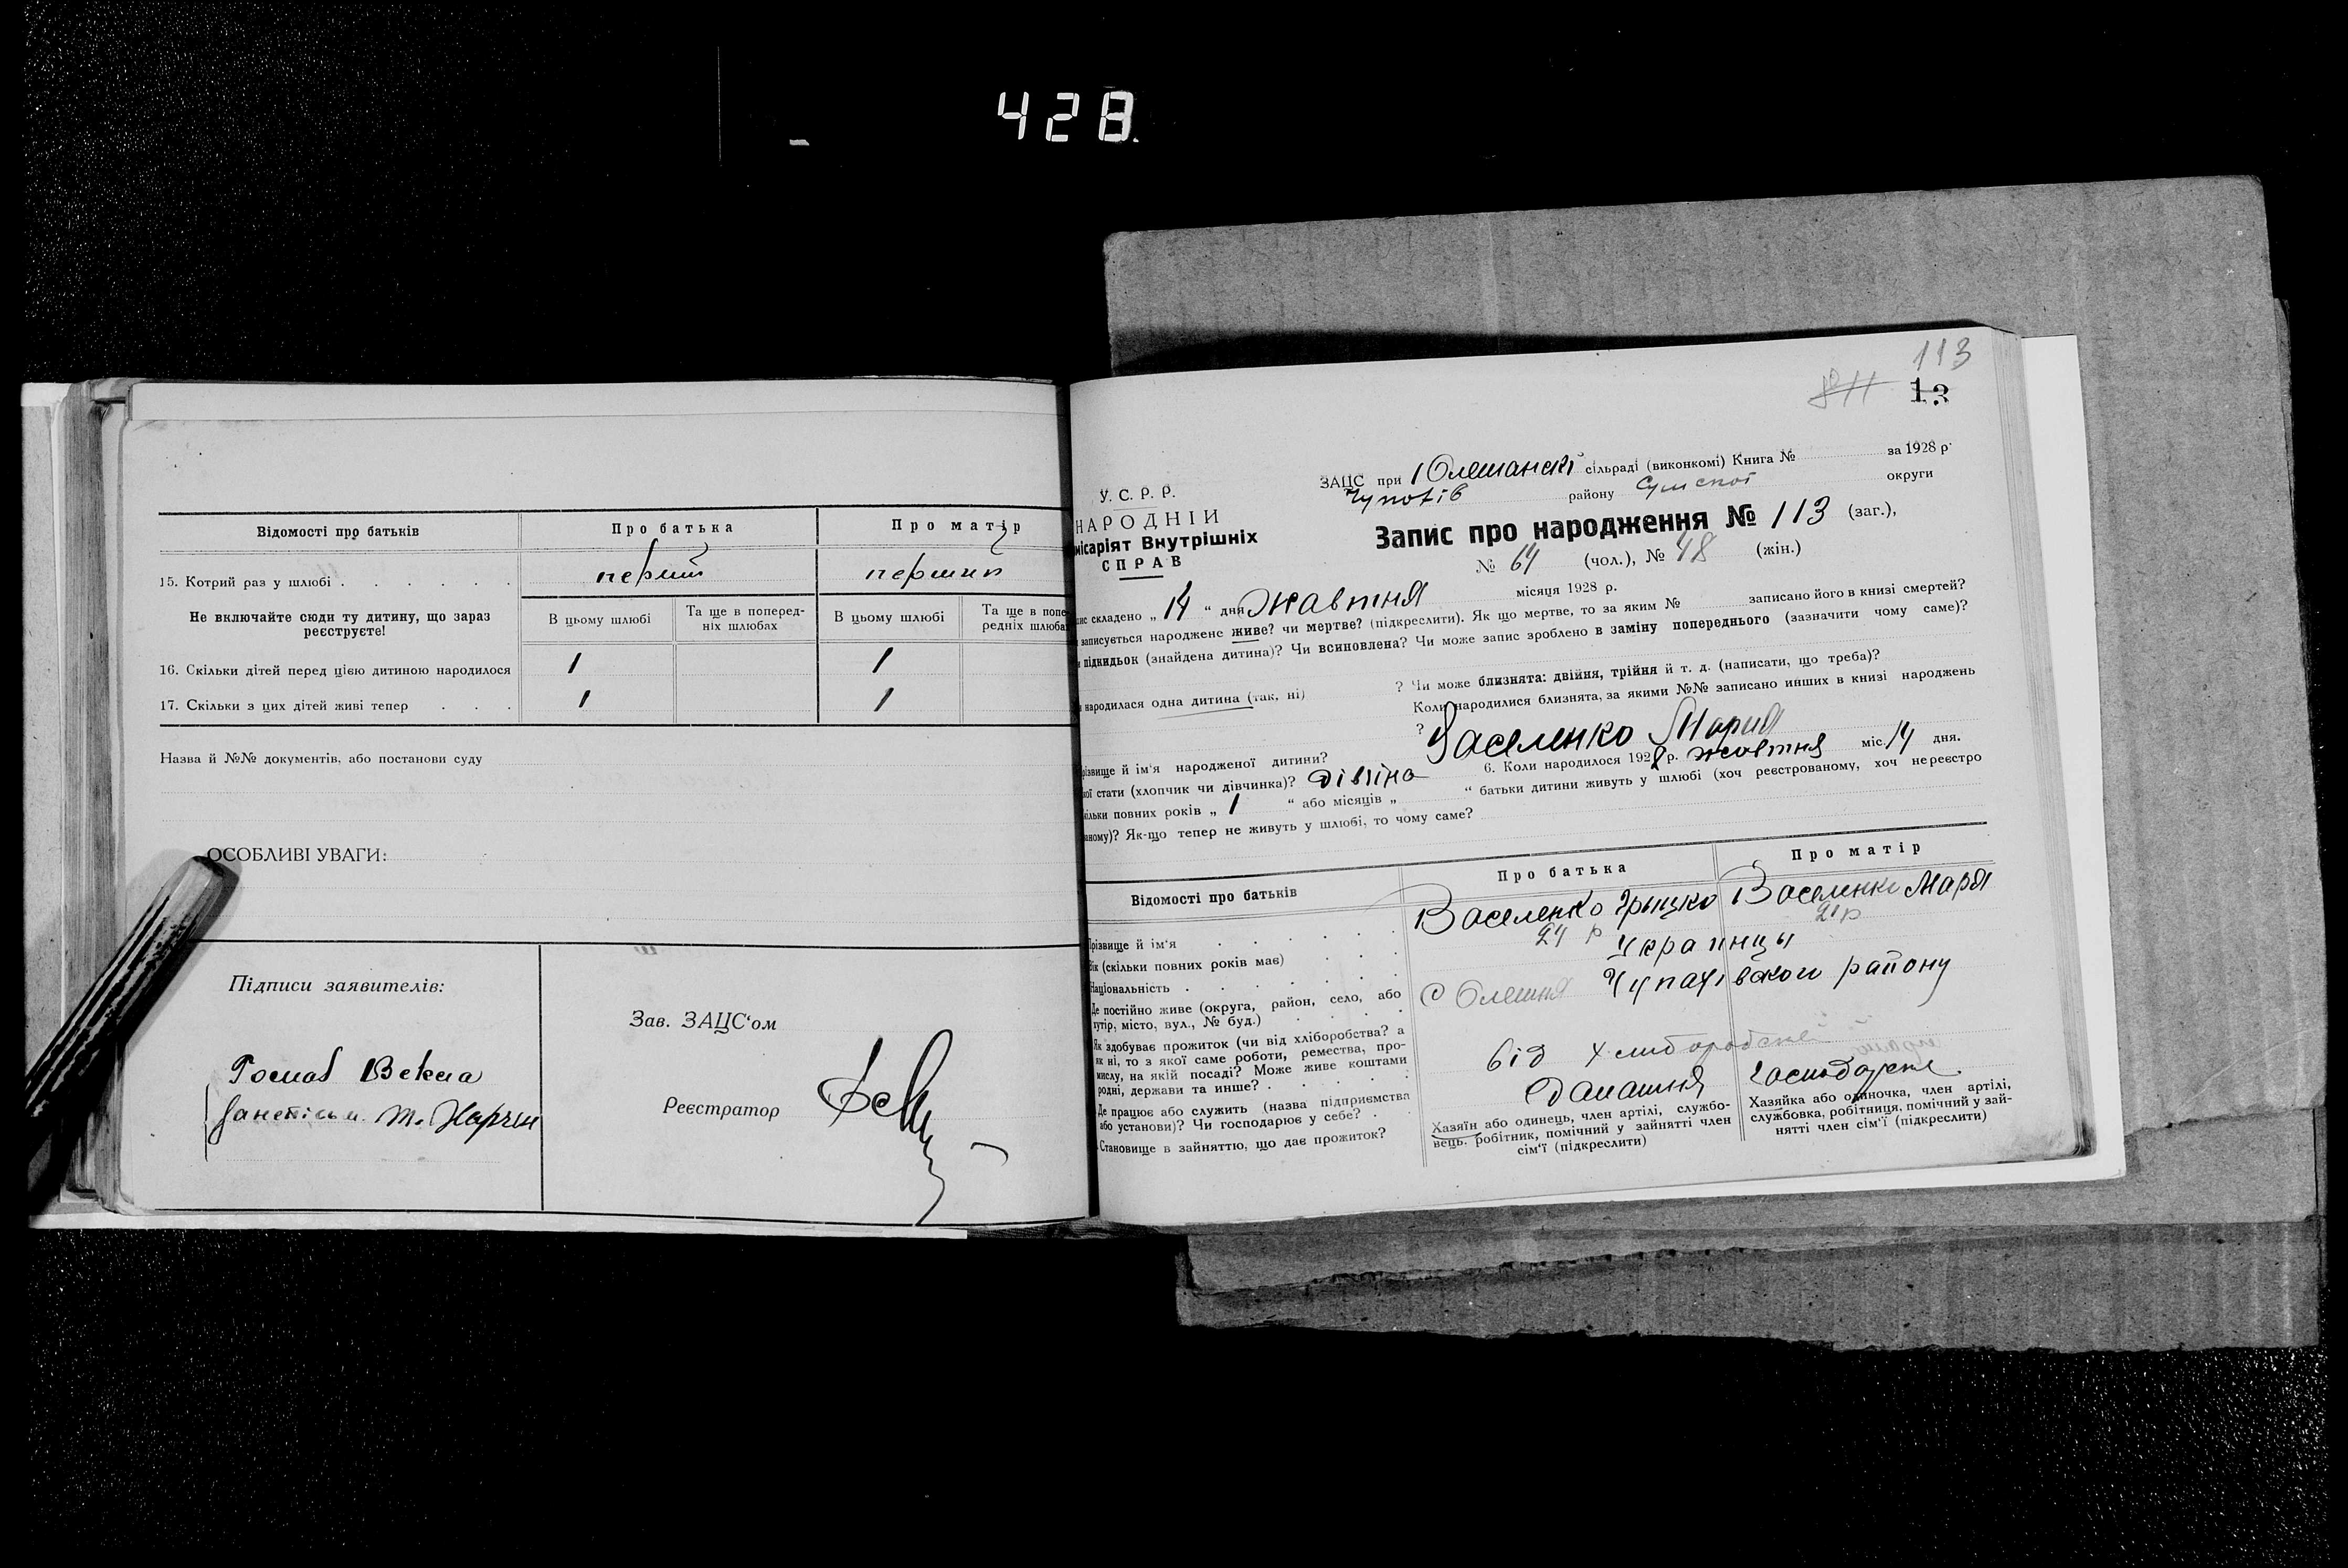 428.
Відомості про батьків
Про батька
Про матір
15. Котрий раз у шлюбі . . . . . .
перший
Не включайте сюди ту дитину, що зараз реєструєте!
В цьому шлюбі
Та ще в поперед-
ніх шлюбах
В цьому шлюбі
Та ще в попе-
редніх шлюбах
16. Скільки дітей перед цією дитиною народилося
1
1
17. Скільки з цих дітей живі тепер . . .
1
1
Назва й №№ документів, або постанови суду
ОСОБЛИВІ УВАГИ:
Підписи заявителів:
Зав. ЗАЦС'ом
Реєстратор
113
13
У. С. Р. Р.
НАРОДНІЙ
місаріят Внутрішніх
СПРАВ
ЗАЦС при Олешанскі сільраді (виконкомі) Книга № за 1928 р.
району Сумскої округи
Запис про народження № 113 (заг.),
№ 64 (чол.), № 48 (жін.)
пис складено „ 14 “ дня Жавтня місяця 1928 р.
записується народжене живе? чи мертве? (підкреслити). Як що мертве, то за яким № записано його в книзі смертей?
підкидьок (знайдена дитина)? Чи всиновлена? Чи може запис зроблено в заміну попереднього (зазначити чому саме)?
народилася одна дитина (так, ні) ? Чи може близнята: двійня, трійня й т. д. (написати, що треба)?
Коли народилися близнята, за якими №№ записано инших в книзі народжень
?
різвище й ім'я народженої дитини? Васеленко Мария
кої стати (хлопчик чи дівчинка)? дівчіна 6. Коли народилося 1928 р. жовтня міс. 14 дня.
ільки повних років „ 1 “ або місяців „ “ батьки дитини живуть у шлюбі (хоч реєстрованому, хоч нереєстро
ному)? Як-що тепер не живуть у шлюбі, то чому саме?
Відомості про батьків
Про батька
Про матір
Прізвище й ім'я . . . . . .
Васеленко Грыцко
Васеленко Марія
Вік (скільки повних років має) . . .
24 р
21 р
Національність . . . . . . .
Украинцы
Де постійно живе (округа, район, село, або
хутір, місто, вул., № буд.) . . . . .
С Олешня Чупахівского району
Як здобуває прожиток (чи від хліборобства? а
як ні, то з якої саме роботи, ремества, про-
мислу, на якій посаді? Може живе коштами
родні, держави та инше? . . . . .
від
Де працює або служить (назва підприємства
або установи)? Чи господарює у себе? . .
Становище в зайняттю, що дає прожиток?
Хазяїн або одинець, член артілі, службо-
вець, робітник, помічний у зайнятті член
сім'ї (підкреслити)
Хазяйка або одиночка, член артілі,
службовка, робітниця, помічний у зай-
нятті член сім'ї (підкреслити)